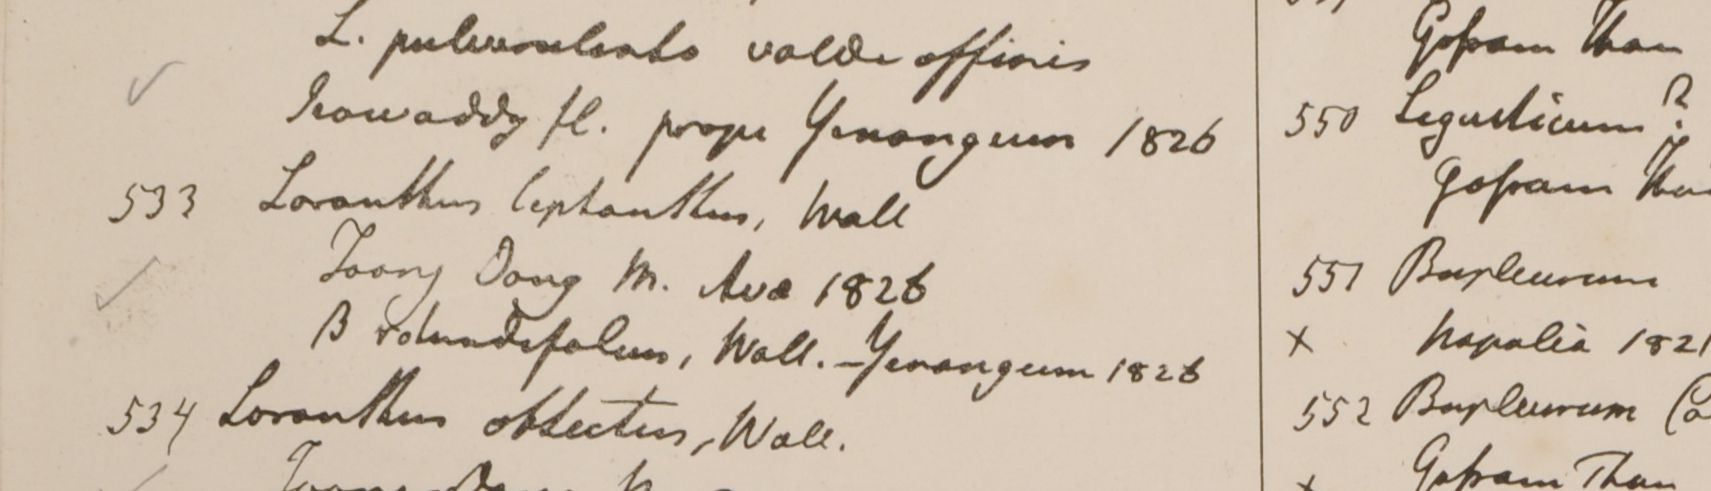 L. pulverulento valde affinis
Irawaddy fl. prope Yenangeum 1826
533 Loranthus leptanthus, Wall
Toong Dong M. Ava 1826
B rotundifolius, Wall. - Yenangeum 1826
534 Loranthus obtectus, Wall.
Toong Dong
Gossam Than
550 Ligusticum ?
Gossam Than
551 Bupleurum
x Napalia 1821
552 Bupleurum
x Gossam Than